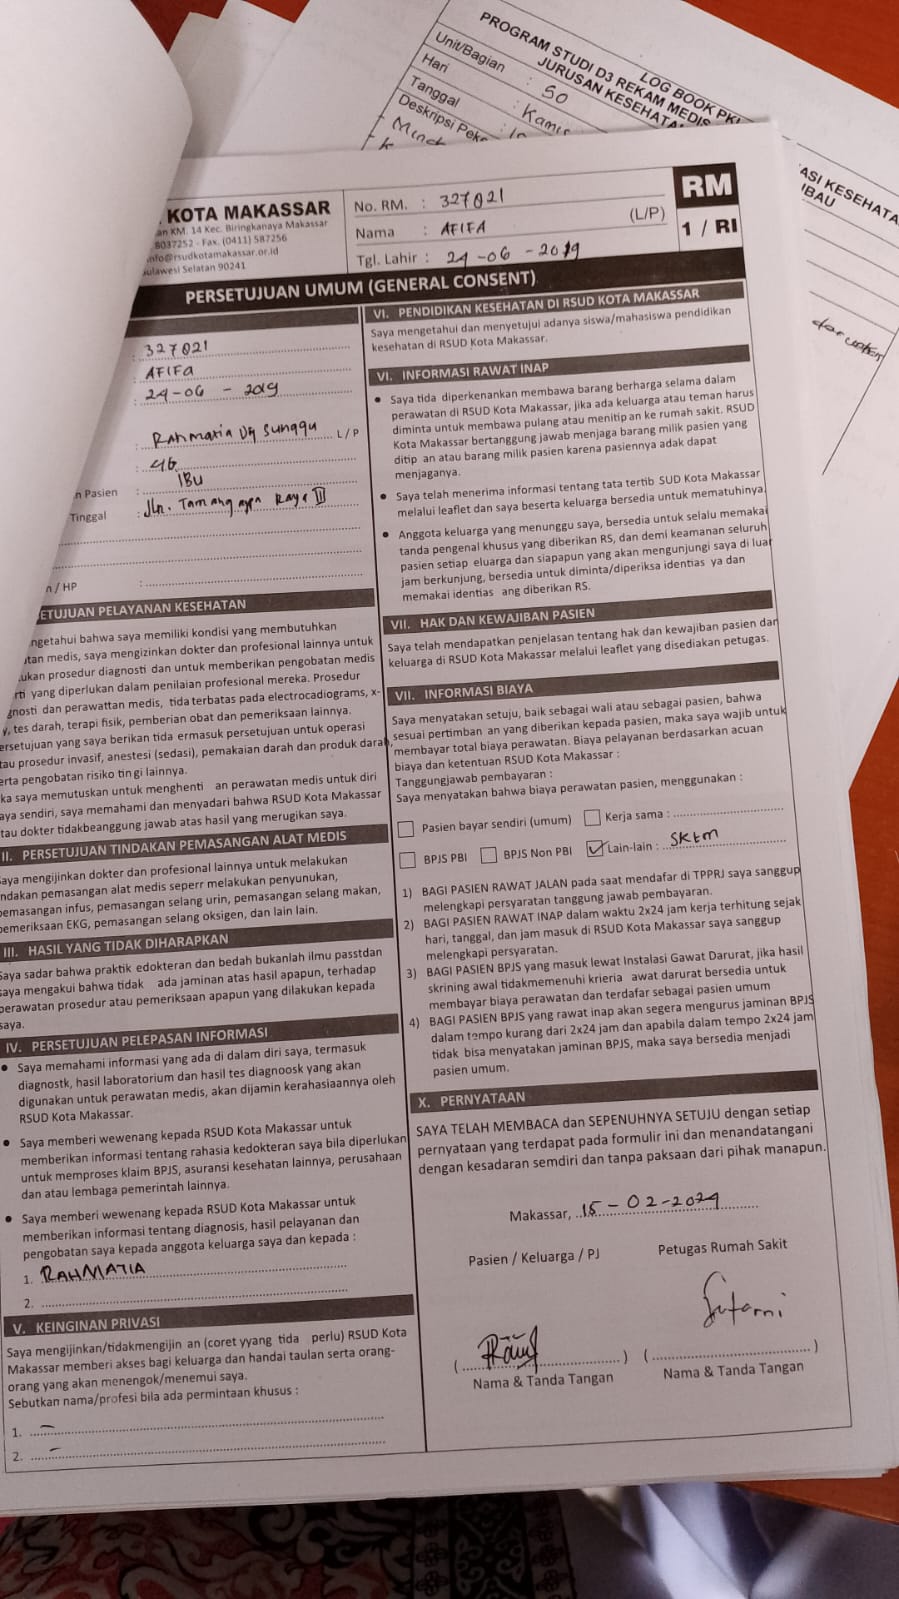 LOG BOOK PKL
PROGRAM STUDI D3 REKAM MEDIS
JURUSAN KESEHATA
Unit/Bagian : 50
Hari : Kamis
Tanggal :
Deskripsi Peke
ASI KESEHATA
UBAU
KOTA MAKASSAR
an KM. 14 Kec. Biringkanaya Makassar
8037252 - Fax. (0411) 587256
nfo@rsudkotamakassar.or.id
ulawesi Selatan 90241
No. RM. : 327021
Nama : AFIFA (L/P)
Tgl. Lahir : 24-06-2019
RM
1 / RI
PERSETUJUAN UMUM (GENERAL CONSENT)
: 327021
: AFIFA
: 24-06 - 2019
: Rahmatia Dg Sunggu L/P
: 46
n Pasien : IBU
Tinggal : Jln. Tamangapa Raya III
n / HP :
ETUJUAN PELAYANAN KESEHATAN
ngetahui bahwa saya memiliki kondisi yang membutuhkan
tan medis, saya mengizinkan dokter dan profesional lainnya untuk
ukan prosedur diagnosti dan untuk memberikan pengobatan medis
rti yang diperlukan dalam penilaian profesional mereka. Prosedur
gnosti dan perawattan medis, tida terbatas pada electrocadiograms, x-
y, tes darah, terapi fisik, pemberian obat dan pemeriksaan lainnya.
ersetujuan yang saya berikan tida ermasuk persetujuan untuk operasi
tau prosedur invasif, anestesi (sedasi), pemakaian darah dan produk darah,
erta pengobatan risiko tin gi lainnya.
ka saya memutuskan untuk menghenti an perawatan medis untuk diri
aya sendiri, saya memahami dan menyadari bahwa RSUD Kota Makassar
tau dokter tidakbeanggung jawab atas hasil yang merugikan saya.
II. PERSETUJUAN TINDAKAN PEMASANGAN ALAT MEDIS
Saya mengijinkan dokter dan profesional lainnya untuk melakukan
ndakan pemasangan alat medis seperr melakukan penyunukan,
pemasangan infus, pemasangan selang urin, pemasangan selang makan,
pemeriksaan EKG, pemasangan selang oksigen, dan lain lain.
III. HASIL YANG TIDAK DIHARAPKAN
Saya sadar bahwa praktik edokteran dan bedah bukanlah ilmu passtdan
saya mengakui bahwa tidak ada jaminan atas hasil apapun, terhadap
perawatan prosedur atau pemeriksaan apapun yang dilakukan kepada
saya.
IV. PERSETUJUAN PELEPASAN INFORMASI
• Saya memahami informasi yang ada di dalam diri saya, termasuk
diagnostk, hasil laboratorium dan hasil tes diagnoosk yang akan
digunakan untuk perawatan medis, akan dijamin kerahasiaannya oleh
RSUD Kota Makassar.
• Saya memberi wewenang kepada RSUD Kota Makassar untuk
memberikan informasi tentang rahasia kedokteran saya bila diperlukan
untuk memproses klaim BPJS, asuransi kesehatan lainnya, perusahaan
dan atau lembaga pemerintah lainnya.
• Saya memberi wewenang kepada RSUD Kota Makassar untuk
memberikan informasi tentang diagnosis, hasil pelayanan dan
pengobatan saya kepada anggota keluarga saya dan kepada :
1. RAHMATIA
2.
V. KEINGINAN PRIVASI
Saya mengijinkan/tidakmengijin an (coret yyang tida perlu) RSUD Kota
Makassar memberi akses bagi keluarga dan handai taulan serta orang-
orang yang akan menengok/menemui saya.
Sebutkan nama/profesi bila ada permintaan khusus :
1. –
2. –
VI. PENDIDIKAN KESEHATAN DI RSUD KOTA MAKASSAR
Saya mengetahui dan menyetujui adanya siswa/mahasiswa pendidikan
kesehatan di RSUD Kota Makassar.
VI. INFORMASI RAWAT INAP
• Saya tida diperkenankan membawa barang berharga selama dalam
perawatan di RSUD Kota Makassar, jika ada keluarga atau teman harus
diminta untuk membawa pulang atau menitip an ke rumah sakit. RSUD
Kota Makassar bertanggung jawab menjaga barang milik pasien yang
ditip an atau barang milik pasien karena pasiennya adak dapat
menjaganya.
• Saya telah menerima informasi tentang tata tertib SUD Kota Makassar
melalui leaflet dan saya beserta keluarga bersedia untuk mematuhinya.
• Anggota keluarga yang menunggu saya, bersedia untuk selalu memakai
tanda pengenal khusus yang diberikan RS, dan demi keamanan seluruh
pasien setiap eluarga dan siapapun yang akan mengunjungi saya di luar
jam berkunjung, bersedia untuk diminta/diperiksa identias ya dan
memakai identias ang diberikan RS.
VII. HAK DAN KEWAJIBAN PASIEN
Saya telah mendapatkan penjelasan tentang hak dan kewajiban pasien dan
keluarga di RSUD Kota Makassar melalui leaflet yang disediakan petugas.
VII. INFORMASI BIAYA
Saya menyatakan setuju, baik sebagai wali atau sebagai pasien, bahwa
sesuai pertimban an yang diberikan kepada pasien, maka saya wajib untuk
membayar total biaya perawatan. Biaya pelayanan berdasarkan acuan
biaya dan ketentuan RSUD Kota Makassar :
Tanggungjawab pembayaran :
Saya menyatakan bahwa biaya perawatan pasien, menggunakan :
Pasien bayar sendiri (umum) Kerja sama :
BPJS PBI BPJS Non PBI Lain-lain : SKTM
1) BAGI PASIEN RAWAT JALAN pada saat mendafar di TPPRJ saya sanggup
melengkapi persyaratan tanggung jawab pembayaran.
2) BAGI PASIEN RAWAT INAP dalam waktu 2x24 jam kerja terhitung sejak
hari, tanggal, dan jam masuk di RSUD Kota Makassar saya sanggup
melengkapi persyaratan.
3) BAGI PASIEN BPJS yang masuk lewat Instalasi Gawat Darurat, jika hasil
skrining awal tidakmemenuhi krieria awat darurat bersedia untuk
membayar biaya perawatan dan terdafar sebagai pasien umum
4) BAGI PASIEN BPJS yang rawat inap akan segera mengurus jaminan BPJS
dalam tempo kurang dari 2x24 jam dan apabila dalam tempo 2x24 jam
tidak bisa menyatakan jaminan BPJS, maka saya bersedia menjadi
pasien umum.
X. PERNYATAAN
SAYA TELAH MEMBACA dan SEPENUHNYA SETUJU dengan setiap
pernyataan yang terdapat pada formulir ini dan menandatangani
dengan kesadaran semdiri dan tanpa paksaan dari pihak manapun.
Makassar, 15-02-2024
Pasien / Keluarga / PJ Petugas Rumah Sakit
Sutarni
( ) ( )
Nama & Tanda Tangan Nama & Tanda Tangan